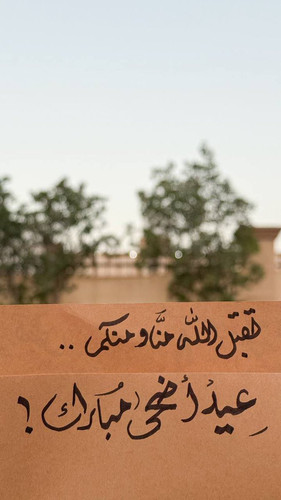 تقبل الله منَّا ومنكم ..
عِيدُ أضحى مُبَارك !